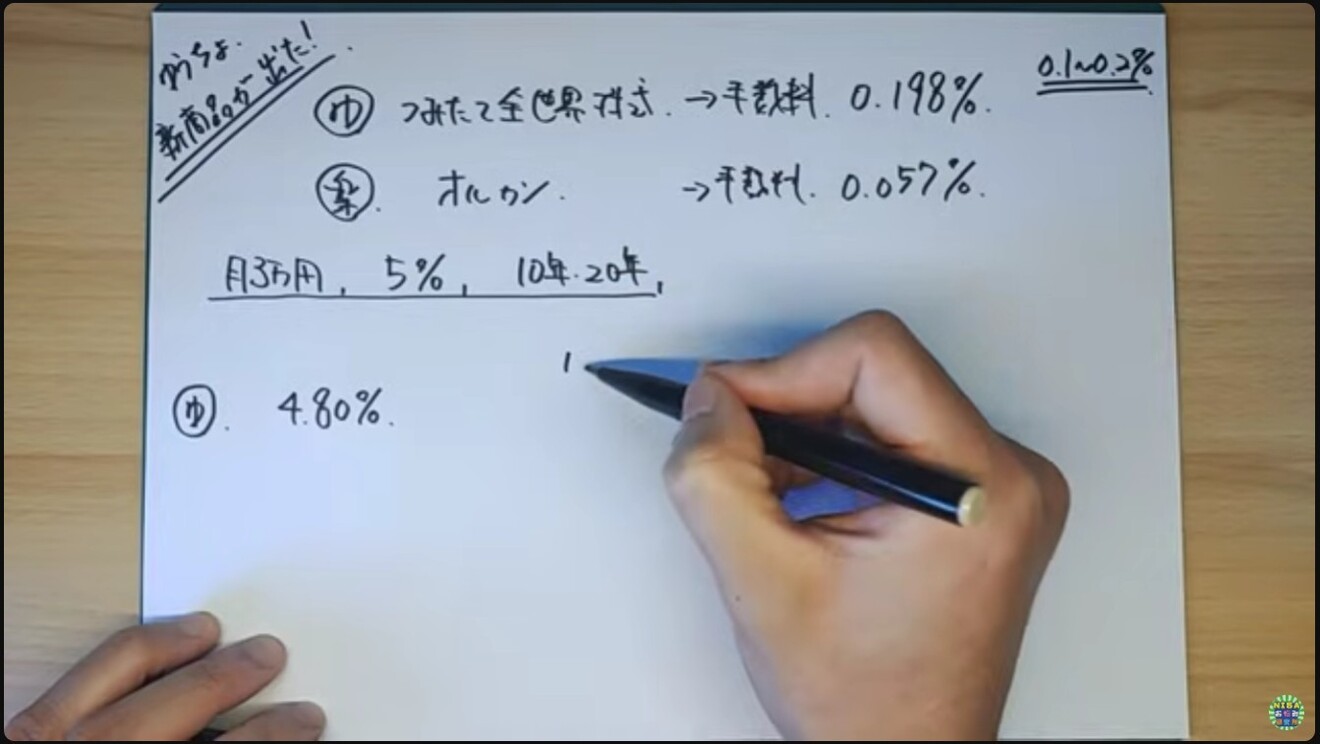 ゆうちょ.
新商品が出た!
0.1~0.2%
ゆ つみたて全世界株式. →手数料. 0.198%.
オルカン. →手数料. 0.057%.
月3万円, 5%, 10年・20年,
1
ゆ. 4.80%.
NISA